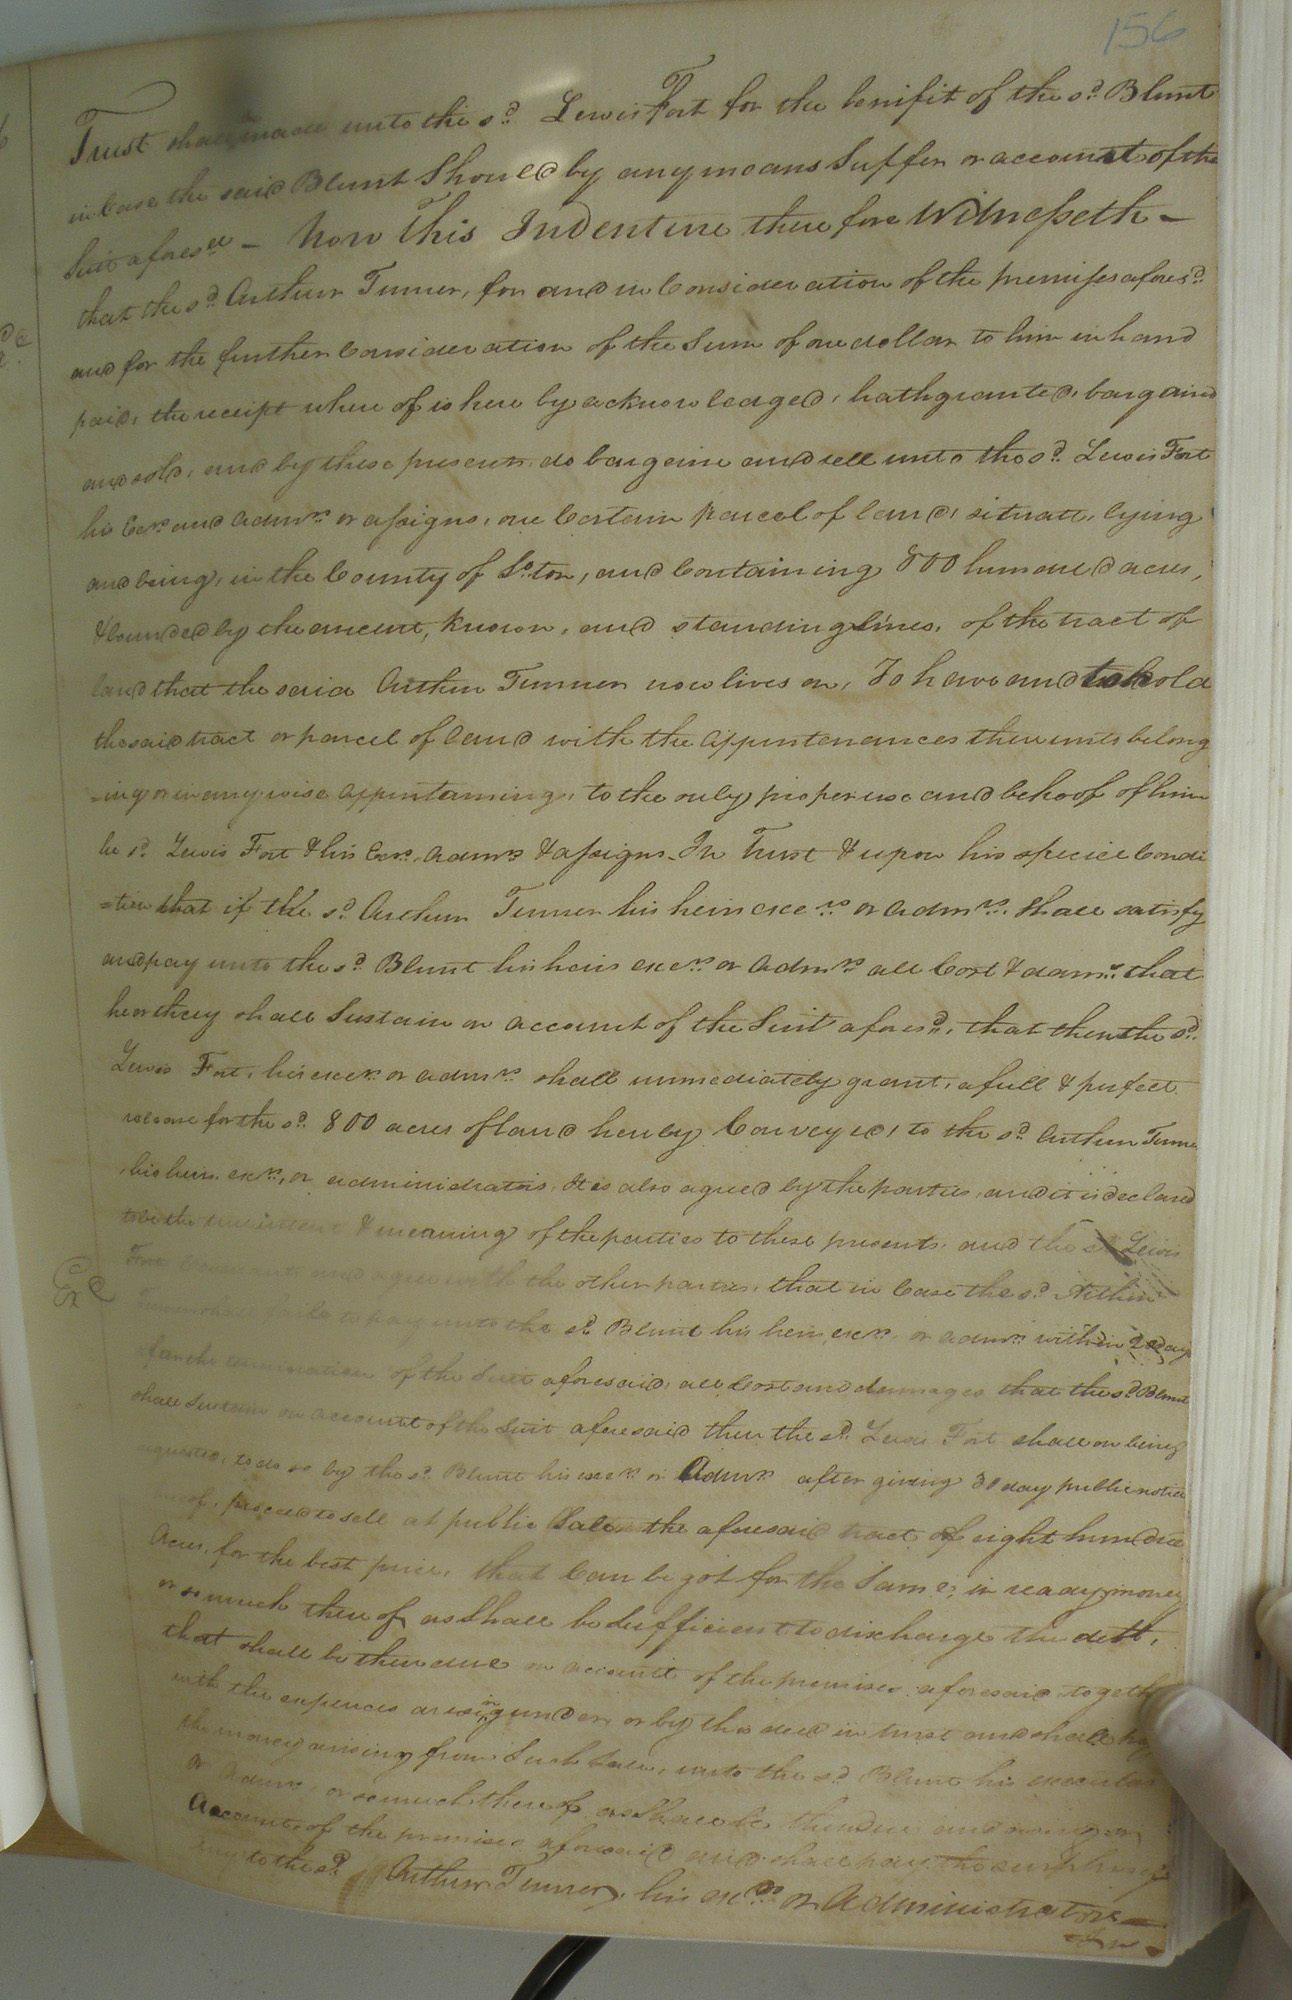 156
Trust shall made unto the sd. Lewis Fort for the benifit of the sd. Blunt
in Case the said Blunt Should by any means Suffer on account of the
Suit aforesd - Now This Indenture there fore Witnesseth -
that the sd. Arthur Turner, for and in Consideration of the premises aforesd.
and for the further Consideration of the Sum of one dollar to him in hand
paid, the receipt where of is here by acknowledged, hath granted, bargained
and sold, and by these presents do bargain and sell unto the sd. Lewis Fort
his Exrs and Admrs. or assigns, one Certain parcel of land, situate, lying
and being, in the County of So.ton, and Containing 800 hundred acres,
& bounded by the ancent, known, and standing lines, of the tract of
land that the said Arthur Turner now lives on, To have and to hold
the said tract or parcel of land with the Appurtenances thereunto belong
=ing or in any wise Appurtaining, to the only proper use and behoof of him
he sd. Lewis Fort & his Exrs. Admrs & assigns. In Trust & upon his special Condi
=tion that if the sd. Arthur Turner his heirs exers. or Admrs. Shall satisfy
and pay unto the sd. Blunt his heirs exers. or Admrs all Cost & dams. that
he or they shall Sustain on account of the Suit aforesd, that then the sd.
Lewis Fort, his exers. or admrs. shall immediately grant, a full & perfect
release for the sd. 800 acres of land hereby Conveyed, to the sd. Arthur Turner
his heirs. exrs, or administrators, It is also agreed by the parties, and it is declared
to be the true intent & meaning of the parties to these presents, and the sd. Lewis
Fort Covenants and agrees with the other parties, that in Case the sd. Arthur
Turner shall faile to pay unto the sd. Blunt his heirs, exrs. or admrs within days
after the termination of the Suit aforesaid, all Cost and dammages that the sd. Blunt
shall Sustain on account of the Suit aforesaid then the sd. Lewis Fort shall on being
requested, to do so by the sd. Blunt his exers. or Admrs. after giving 30 day public notice
of, proceed to sell at public Sale the aforesaid tract of eight hundred
Acres, for the best price, that Can be got for the Same, in ready money
or so much there of as Shall be Sufficient to discharge the debt,
that shall be then due on account of the premises aforesaid, togeth
with the expences arising under, or by this deed in trust and shall pay
the money arising from Such Sale, unto the sd. Blunt his executors
or Admrs, or so much there of as Shall be then due and owing on
Account, of the premises aforesaid and shall pay the surplus if
any to the sd. Arthur Turner, his exrs. or Administrators -